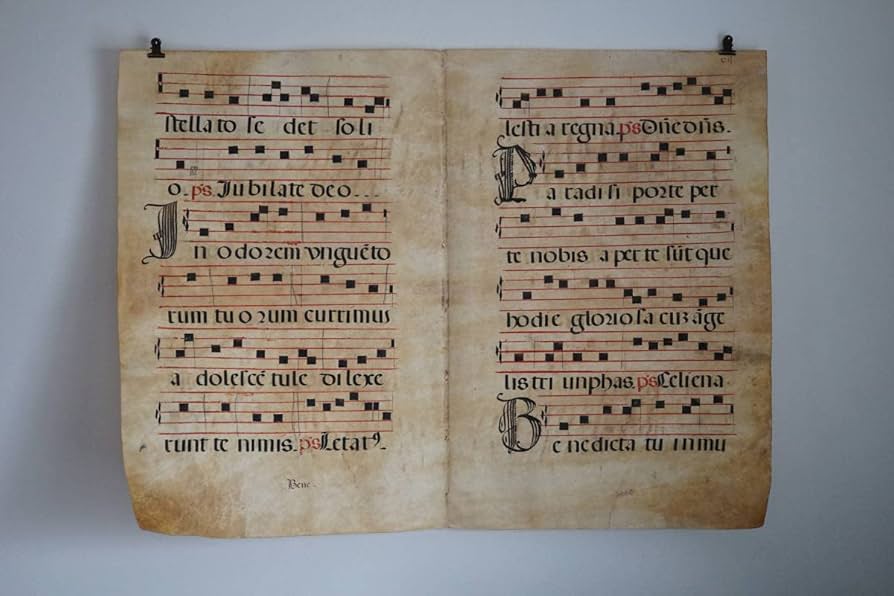 stella to se det so li
o. ps. Jubilate deo...
In odorem vnguēto
rum tu o rum currimus
a dolescē tule dilexe
runt te nimis. ps Letatꝰ.
Bene.
lesti a regna. ps Dn̄e dn̄s.
Pa radi si porte per
te nobis a per te sūt que
hodie glorio sa cuʒ āge
lis tri unphas. ps Celi ena
Be ne dicta tu in mu